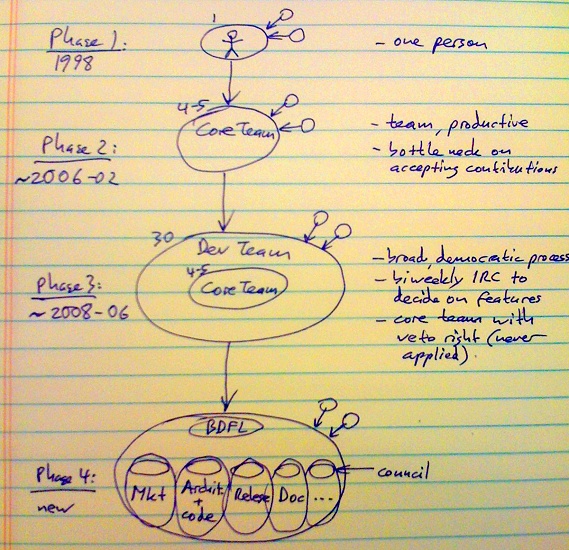 1
Phase 1:
1998
- one person
4-5
Core Team
Phase 2:
~2006-02
- team, productive
- bottle neck on
accepting contributions
30
Dev Team
4-5
Core Team
Phase 3:
~2008-06
- broad, democratic process
- biweekly IRC to
decide on features
- core team with
veto right (never
applied).
BDFL
Phase 4:
new
Mkt
Archit.
+
code
Release
Doc
...
council